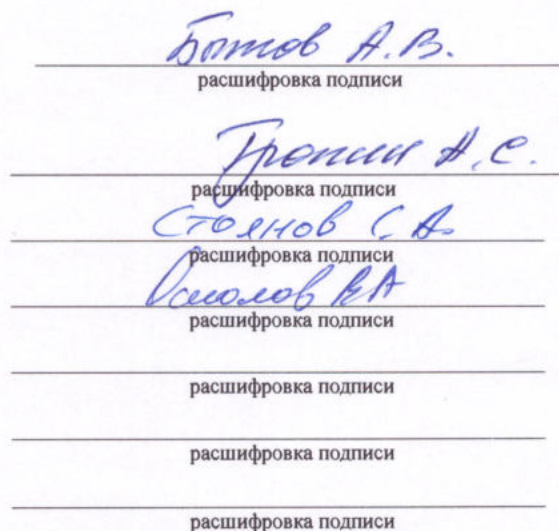 А.В.
расшифровка подписи
А.С.
расшифровка подписи
Стоянов С.А.
расшифровка подписи
расшифровка подписи
расшифровка подписи
расшифровка подписи
расшифровка подписи